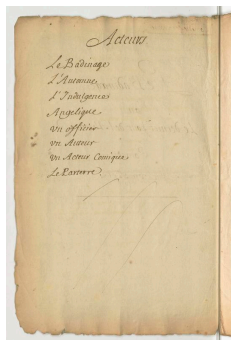 Acteurs
Le Badinage
L'Automne
L'Indulgence
Angelique
vn officier
vn Auteur
vn Acteur Comique
Le Parterre